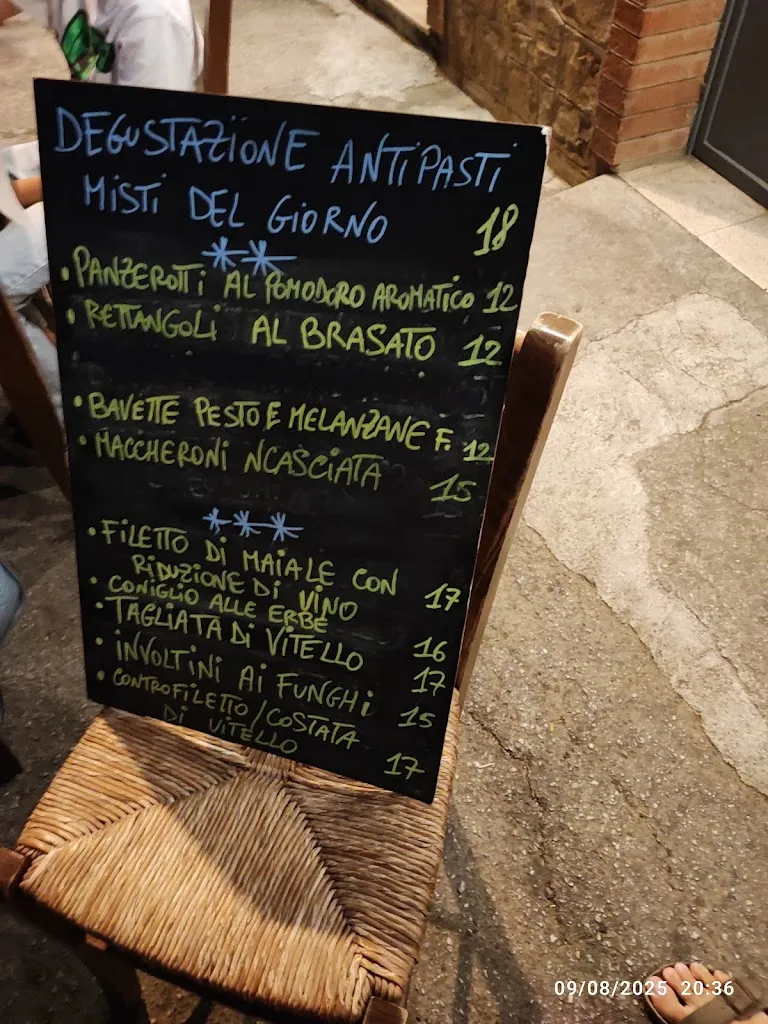 DEGUSTAZIONE ANTIPASTI
MISTI DEL GIORNO 18
• PANZEROTTI AL POMODORO AROMATICO 12
• RETTANGOLI AL BRASATO 12
• BAVETTE PESTO E MELANZANE F. 12
• MACCHERONI NCASCIATA 15
• FILETTO DI MAIALE CON
RIDUZIONE DI VINO 17
• CONIGLIO ALLE ERBE 16
• TAGLIATA DI VITELLO 17
• INVOLTINI AI FUNGHI 15
• CONTROFILETTO/COSTATA
DI VITELLO 17
09/08/2025 20:36